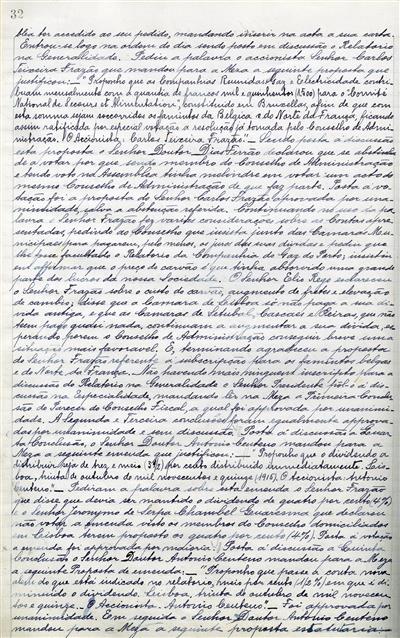 32
blea ter accedido ao seu pedido, mandando inserir na acta a sua carta.
Entrou-se logo na ordem do dia sendo posto em discussão o Relatorio
na Generalidade. Pediu a palavra o accionista Senhor Carlos
Teixeira Frazão que mandou para a Meza a seguinte proposta que
justificou:— "Proponho que as Companhias Reunidas Gaz e Electricidade contri-
buam mensalmente com a quantia de francos mil e quinhentos (1500) para o "Comité
National de Secours et Alimentation", constituido em Bruxellas, afim de que com
esta somma sejam soccorridos os famintos da Belgica e do Norte da França, ficando
assim ratificada por especial votação a resolução já tomada pelo Conselho de Admi-
nistração. O Accionista: Carlos Teixeira Frazão".— Sendo posta á discussão
esta proposta o Senhor Duarte Dias Ferrão declarou que se abstinha
de a votar por que sendo membro do Conselho de Administração
e tendo voto na Assemblea tinha melindre em votar um acto do
mesmo Conselho de Administração de que faz parte. Posta á vo-
tação foi a proposta do Senhor Carlos Frazão aprovada por una-
nimidade, salvo a abstenção referida. Continuando no uso da pa-
lavra o Senhor Frazão fez varias considerações sobre as Contas apre-
sentadas, pedindo ao Conselho que insista junto das Camaras Mu-
nicipaes para pagarem, pelo menos, os juros das suas dividas e pediu que
lhe fosse facultado o Relatorio da Companhia do Gaz do Porto; insistiu
em afirmar que o preço do carvão é que tinha absorvido uma grande
parte dos lucros da nossa Sociedade. O Senhor Elio Rego esclareceu
o Senhor Frazão sobre o custo do carvão, augmento de fretes e elevação
de cambio, disse que a Camara de Lisboa só não paga a sua di-
vida antiga, e que as Camaras de Setubal, Cascaes e Oeiras, que não
teem pago quasi nada, continuam a augmentar a sua divida, es-
perando porem o Conselho de Administração conseguir breve uma
situação mais favoravel. E, terminando agradeceu a proposta
do Senhor Frazão referente á subscripção para os famintos belgas
e do Norte da França. Não havendo mais ninguem inscripto para a
discussão do Relatorio na Generalidade o Senhor Presidente pôl-o á dis-
cussão na Especialidade, mandando lêr na Meza a Primeira Conclu-
são do Parecer do Conselho Fiscal, a qual foi approvada por unanimi-
dade. A Segunda e Terceira conclusões foram egualmente approva-
das por unanimidade e sem discussão. Posta á discussão a Quar-
ta Conclusão, o Senhor Doutor Antonio Centeno mandou para a
Meza a seguinte emenda que justificou:— "Proponho que o dividendo a
distribuir seja de trez e meio (3½) por cento distribuido immediatamente. Lis-
boa, trinta de outubro de mil novecentos e quinze (1915). O Accionista: Antonio
Centeno".— Pediram a palavra sobre esta emenda o Senhor Frazão
que disse que devia ser mantido o dividendo de quatro por cento (4%)
e o Senhor Jeronymo de Serpa Chambel Quaresma que declarou
não votar a emenda visto os membros do Conselho domiciliados
em Lisboa terem proposto os quatro por cento (4%). Posta á votação
a emenda foi aprovada por maioria. Posta á discussão a Quinta
Conclusão o Senhor Doutor Antonio Centeno mandou para a Meza
a seguinte Proposta de emenda:— "Proponho que passe á conta nova
alem do que está indicado no relatorio, mais meio por cento (½%) em que é di-
minuido o dividendo. Lisboa, trinta de outubro de mil novecen-
tos e quinze. O Accionista. Antonio Centeno".— Foi approvada por
unanimidade. Em seguida o Senhor Doutor Antonio Centeno
mandou para a Meza a seguinte proposta estatuaria: